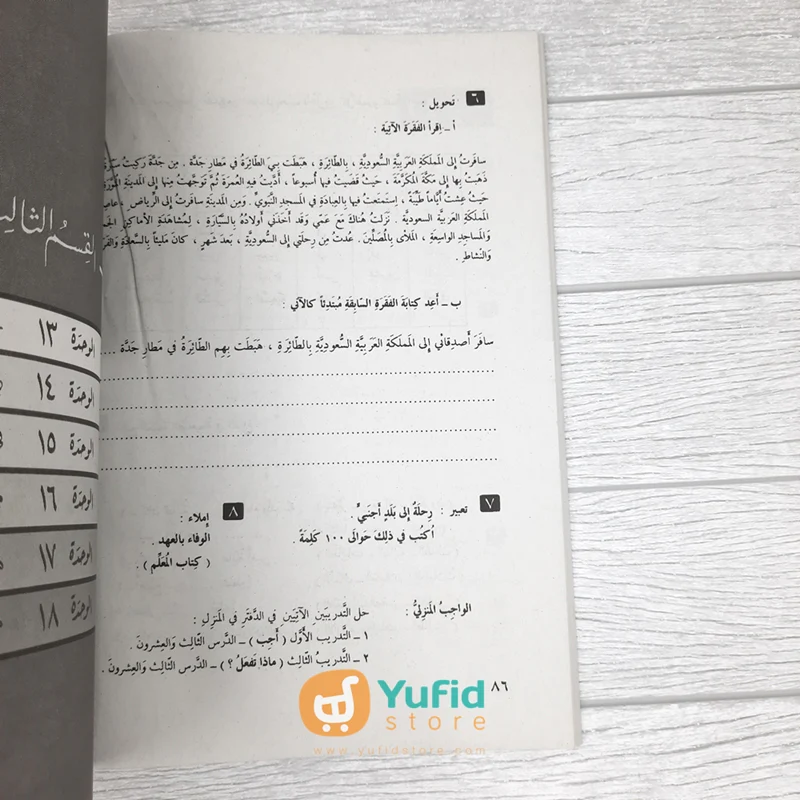 ٦ تَحويل :
أ ـ اِقرأ الفَقرَةَ الآتيَة :
سافَرتُ إلى المَملَكَةِ العَرَبيَّةِ السُّعوديَّةِ ، بِالطّائِرَةِ ، هَبَطَت بِيَ الطّائِرَةُ في مَطارِ جَدَّة . مِن جَدَّة رَكِبتُ
ذَهَبتُ بِها إلى مَكَّةَ المُكَرَّمَة ، حَيثُ قَضَيتُ فيها أُسبوعاً ، أَدَّيتُ فيهِ العُمرَةَ ثُمَّ تَوَجَّهتُ مِنها إلى المَدينَةِ
حَيثُ عِشتُ أَيّاماً طَيِّبَةً ، اِستَمتَعتُ فيها بِالعِبادَةِ في المَسجِدِ النَّبَويِّ . وَمِن المَدينَةِ سافَرتُ إلى الرِّياض ،
المَملَكَةِ العَرَبيَّةِ السعوديَّة . نَزَلتُ هُناكَ مَعَ عَمّي وَقَد أَخَذَني أَولادُهُ بِالسَّيّارَةِ ، لِمُشاهَدَةِ الأَماكِنِ
وَالمَساجِدِ الواسِعَةِ ، المَلأى بِالمُصَلّينَ . عُدتُ مِن رِحلَتي إلى السُّعوديَّةِ ، بَعدَ شَهرٍ ، كانَ مَليئاً بِالسَّعادَةِ
وَالنَّشاطِ .
ب ـ أَعِد كِتابَةَ الفَقرَةِ السّابِقَةِ مُبتَدِئاً كالآتي :
سافَرَ أَصدِقائي إلى المَملَكَةِ العَرَبيَّةِ السُّعوديَّةِ بِالطّائِرَةِ ، هَبَطَت بِهِم الطّائِرَةُ في مَطارِ جَدَّة ....
٧ تعبير : رِحلَةٌ إلى بَلَدٍ أَجنَبيٍّ .
اُكتُب في ذلِكَ حَوالَى ١٠٠ كَلِمَةً .
٨ إملاء :
الوفاء بالعهد .
( كِتاب المُعَلِّم ) .
الواجِبُ المَنزِليُّ : حل التَّدريبَينِ الآتيَينِ في الدَّفتَرِ في المَنزِل :
١ ـ التَّدريب الأَوَّل ( أَجِب ) ـ الدَّرس الثّالِث وَالعِشرونَ .
٢ ـ التَّدريبُ الثّالِث ( ماذا تَفعَلُ ؟ ) ـ الدَّرس الثّالِث وَالعِشرونَ .
٨٦
القِسمُ الثّالِث
الوحدَة ١٣
الوحدَة ١٤
الوحدَة ١٥
الوحدَة ١٦
الوحدَة ١٧
الوحدَة ١٨
Yufid
store
www.yufidstore.com